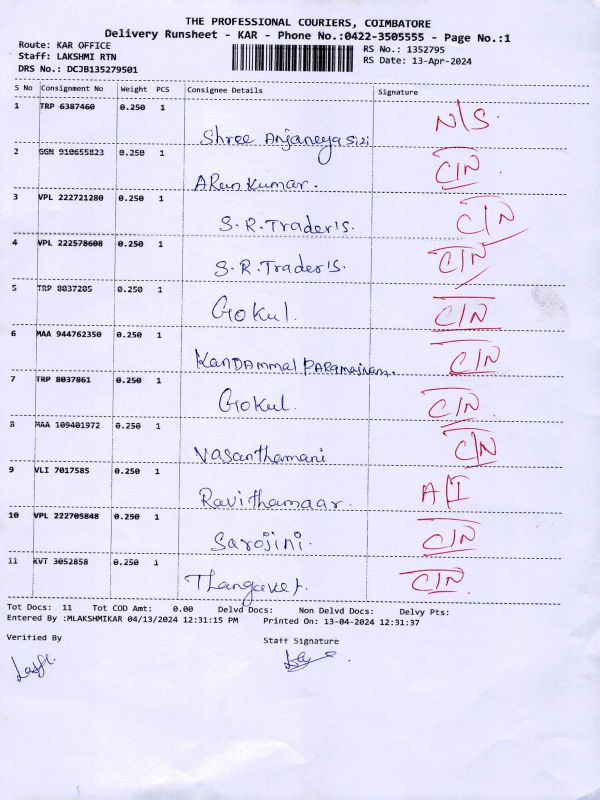 THE PROFESSIONAL COURIERS, COIMBATORE
Delivery Runsheet - KAR - Phone No.:0422-3505555 - Page No.:1
Route: KAR OFFICE RS No.: 1352795
Staff: LAKSHMI RTN RS Date: 13-Apr-2024
DRS No.: DCJB135279501
S No Consignment No Weight PCS Consignee Details Signature
1 TRP 6387460 0.250 1 N/S
Shree Anjaneya
2 GGN 910655823 0.250 1 C/N
ARun Kumar.
3 VPL 222721280 0.250 1 C/N
S.R.Trader's.
4 VPL 222578608 0.250 1 C/N
S.R.Trader's.
5 TRP 8037205 0.250 1 C/N
Gokul.
6 MAA 944762350 0.250 1 C/N
KanDAmmal
7 TRP 8037861 0.250 1 C/N
Gokul.
8 MAA 109401972 0.250 1 C/N
Vasanthamani
9 VLI 7017585 0.250 1 A/I
Ravithamaar.
10 VPL 222705848 0.250 1 C/N
Sarojini.
11 KVT 3052858 0.250 1 C/N
Thangavel.
Tot Docs: 11 Tot COD Amt: 0.00 Delvd Docs: Non Delvd Docs: Delvy Pts:
Entered By :MLAKSHMIKAR 04/13/2024 12:31:15 PM Printed On: 13-04-2024 12:31:37
Verified By Staff Signature